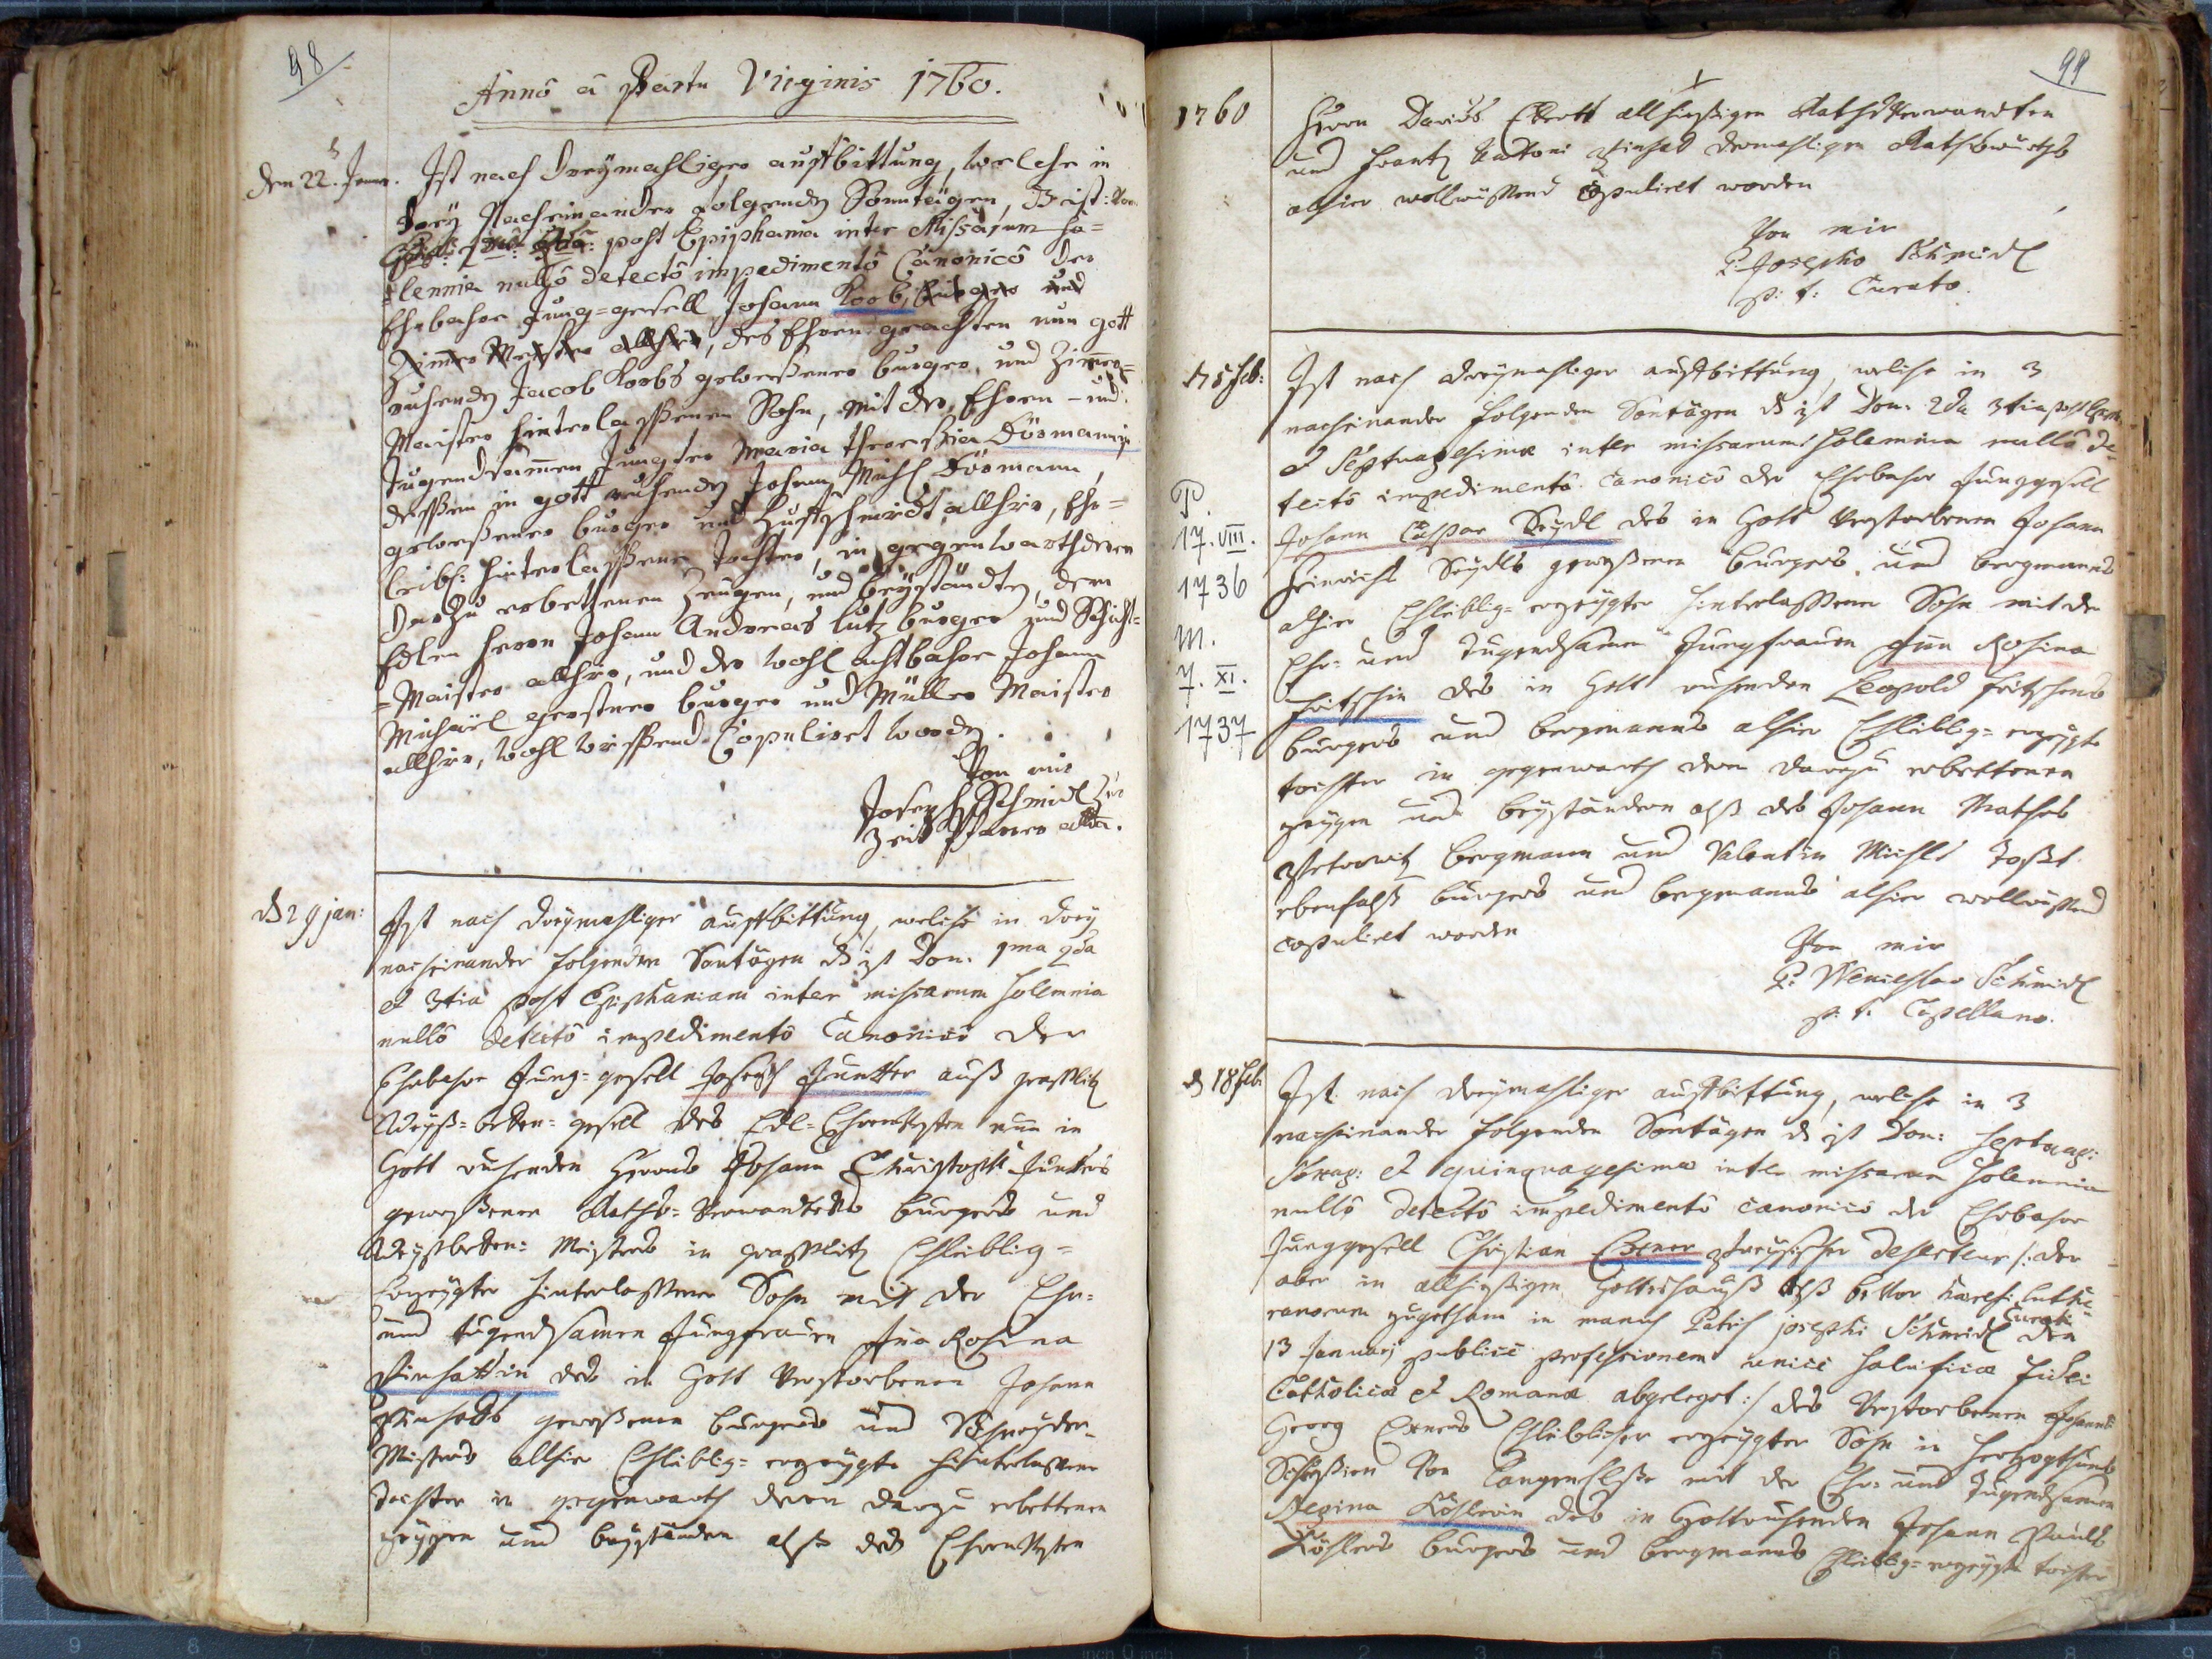 98
Anno â Partu Virginis 1760.
den 22. Janu.
Ist nach dreymahliger auffbittung, welche in
drey Nacheinander folgenden Sonntägen, d. ist:
post Epiphania inter Missarum so=
lennia nullô detectô impedimentô Canonicô der
Ehrbahre Jung=gesell Johann Koob, burger und
Zimer Meister allhier, des Ehren geachten nun gott
ruhenden Jacob Koobs geweßener burger, und Zimer=
Maister hinterlaßenen Sohn, mit der Ehren- und
Tugendsamen Jungfer Maria Theresia Dörmanin
deßen in gott ruhenden Johann Michl Dörmann,
geweßener burger und Huffschmidt allhier, Ehe=
leibl: hinterlaßene Tochter, in gegenwarth deren
darzu erbettenen Zeugen, und beyständten, dem
Edlen Herrn Johann Andreas Lutz burger und Schicht=
=Maister allhier, und der wohl achtbahre Johann
Michaël gerstner burger und Müller Maister
allhier, wohl wissend Copuliret worden.
Von mir
Joseph Schmidl Zur
Zeit Pfarrer allda.
d 29 jan:
Ist nach dreymahliger auffbittung, welche in drey
nacheinander folgenden Sontägen d ist Dom. 1ma 2da
et 3tia post Epiphaniam inter missarum solemnia
nullô detectô impedimentô Canonicô der
Ehrbahre Jung=gesell Joseph Juntter auß graßlitz
Weyß=becken=gesell des Edl=Ehrenvesten nun in
Gott ruhenden Herrns Johann Christoph Junters
geweßenen Raths=Verwandtens burgers und
Weyßbecken=Meisters in graßlitz Ehleiblig=
Erzeygter hinterlaßener Sohn mit der Ehr=
und tugendsamen Jungfrauen Ana Rosina
des in Gott Verstorbenen Johann
geweßenen burgers und Schneyder-
Meisters allhier Ehleiblig=erzeygte hinterlaßene
Tochter in gegenwarth deren darzu erbettenen
zeygen und beyständen alß des Ehrenvesten
99
1760
Herrn Davids Ebertt allhießigen Rathsverwandten
und Frantz Antoni dermahligen Rathswürths
alhier wollwißend copuliret worden
Von mir
P: Josepho Schmidl
p: t: Curato.
d 5 feb:
P.
17. VIII.
1736
M.
7. XI.
1737
Ist nach dreymahliger auffbittung, welche in 3
nacheinander folgenden Sontägen d ist Dom. 2da 3tia post Epiph.
et Septuagesima inter missarum solemnia nullô de-
tectô impedimentô Canonicô der Ehrbahre Junggesell
Johann Caspar Seydl des in Gott Verstorbenen Johann
Heinrich Seydls geweßenen burgers und bergmanns
alhier Ehleiblig=erzeygter hinterlaßener Sohn mit der
Ehr= und Tugendsamen Jungfrauen Ann Rosina
Fritschin des in Gott ruhenden Leopold Fritschens
burgers und bergmanns alhier Ehleiblig=erzeygte
tochter in gegenwarth deren darzu erbettenen
zeygen und beyständen alß des Johann Mathes
bergmann und Valentin Michls
ebenfalß burgers und bergmanns alhier wollwißend
copuliret worden
Von mir
P: Wenceslao Schmidl
p. t. Capellano.
d 18 feb:
Ist nach dreymahliger auffbittung, welche in 3
nacheinander folgenden Sontägen d ist Dom: Septuag:
Sexag: et quinquagesima inter missarum solemnia
nullô detectô impedimentô canonicô der Ehrbahre
Junggesell Christian Exner preysischer deserteur /: der
aber in allhießigen Gotteshauß
zugethan in manus Patris josephi Schmidl Curati den
13 Januarj publice professionem unice salvificæ fidei
Catholicæ et Romanæ abgeleget :/ des Verstorbenen Johann
Georg Exners Ehleiblicher erzeygter Sohn in Hertzogthumb
Schleßien Von Langen mit der Ehr= und Tugendsamen
Regina Köhlerin des in Gottruhenden Johann Pauls
Köhlers burgers und bergmanns Ehleiblig=erzeygte tochter